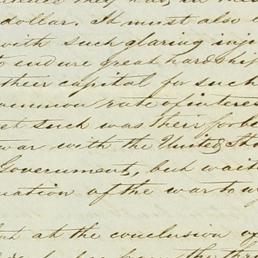 dollar. It must also
with such glaring inju
to endure great hardship
their capital for such
common rate of interes
yet such was their forbe
war with the United Sta
Government, but wait
uation of the war to
but at the conclusion of
from the